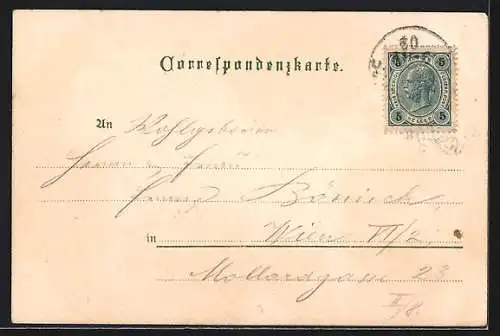 Correspondenzkarte.
An Wohlgeboren
Herrn u Frau
Franz Bönisch
in Wien VI/2
Mollardgasse 23
II/8.
5 5
5 5